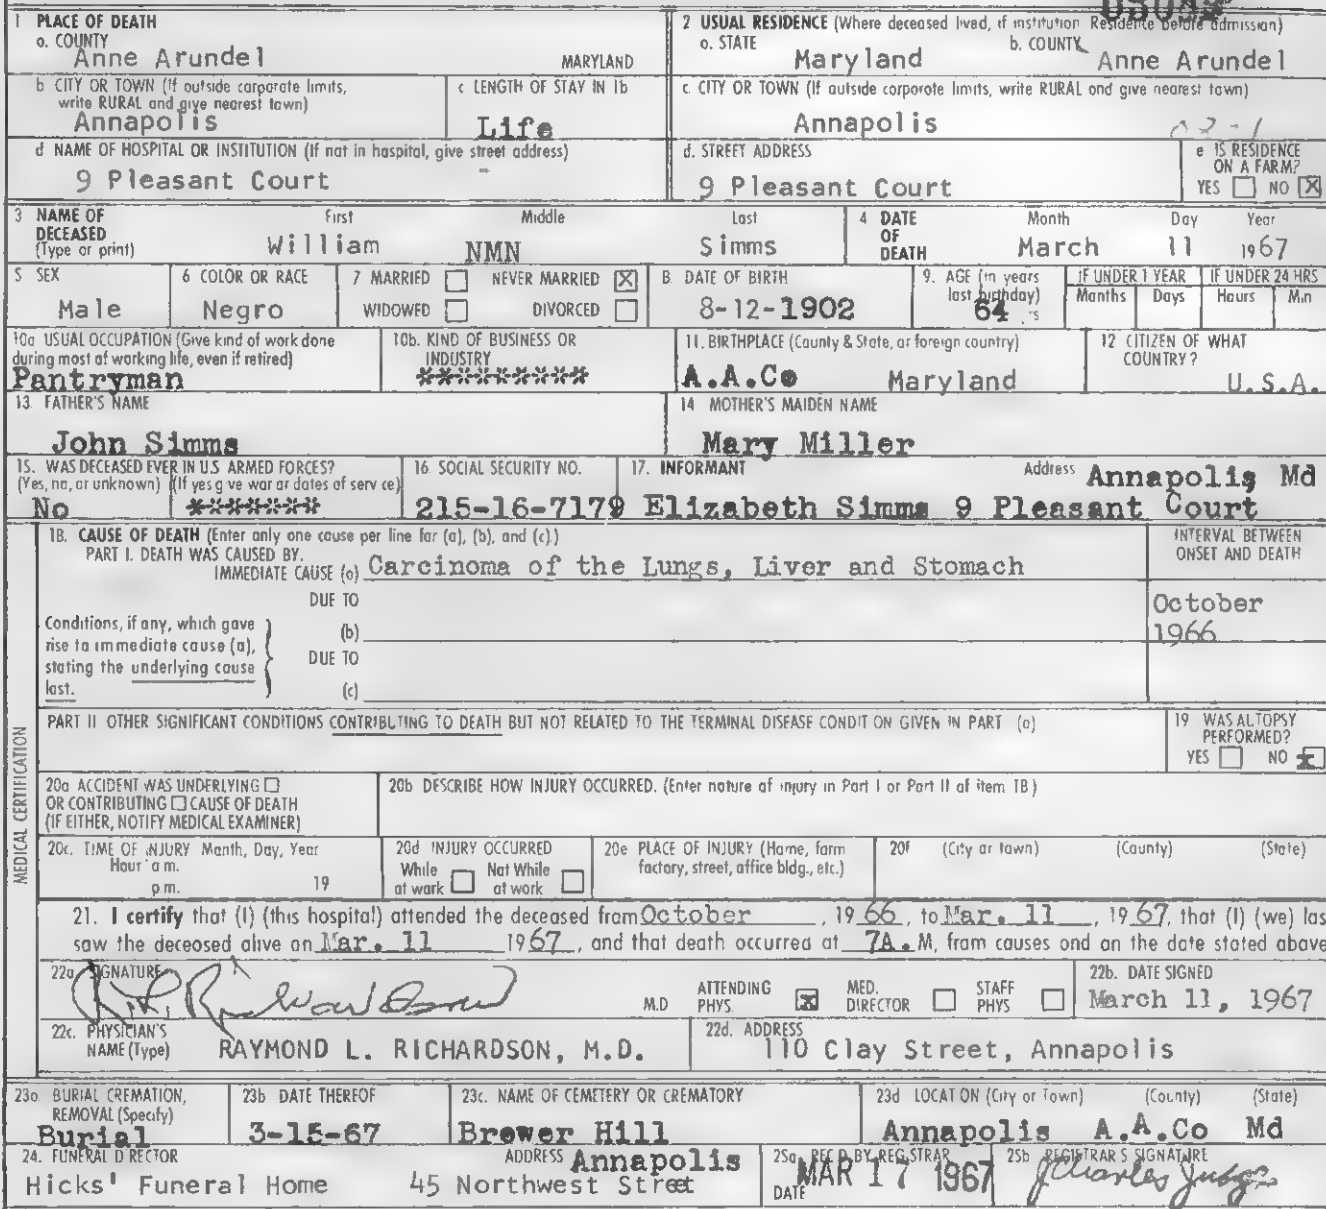 1 PLACE OF DEATH
a. COUNTY
Anne Arundel MARYLAND
2 USUAL RESIDENCE (Where deceased lived, if institution Residence before admission)
a. STATE b. COUNTY
Maryland Anne Arundel
b CITY OR TOWN (If outside corporate limits, write RURAL and give nearest town)
Annapolis
c LENGTH OF STAY IN 1b
Life
c. CITY OR TOWN (If outside corporate limits, write RURAL and give nearest town)
Annapolis
d NAME OF HOSPITAL OR INSTITUTION (If not in hospital, give street address)
9 Pleasant Court
d. STREET ADDRESS
9 Pleasant Court
e IS RESIDENCE ON A FARM?
YES NO X
3 NAME OF DECEASED (Type or print)
First Middle Last
William NMN Simms
4 DATE OF DEATH
Month Day Year
March 11 1967
5 SEX
Male
6 COLOR OR RACE
Negro
7 MARRIED NEVER MARRIED X
WIDOWED DIVORCED
8. DATE OF BIRTH
8-12-1902
9. AGE (In years last birthday)
64
IF UNDER 1 YEAR
Months Days
IF UNDER 24 HRS
Hours Min
10a USUAL OCCUPATION (Give kind of work done during most of working life, even if retired)
Pantryman
10b. KIND OF BUSINESS OR INDUSTRY
*********
11. BIRTHPLACE (County & State, or foreign country)
A.A.Co Maryland
12 CITIZEN OF WHAT COUNTRY?
U.S.A.
13. FATHER'S NAME
John Simms
14 MOTHER'S MAIDEN NAME
Mary Miller
15. WAS DECEASED EVER IN U.S ARMED FORCES?
(Yes, no, or unknown) (If yes give war or dates of service)
No *******
16 SOCIAL SECURITY NO.
215-16-7179
17. INFORMANT Address
Elizabeth Simms 9 Pleasant Court Annapolis Md
18. CAUSE OF DEATH (Enter only one cause per line for (a), (b), and (c).)
PART I. DEATH WAS CAUSED BY.
IMMEDIATE CAUSE (a) Carcinoma of the Lungs, Liver and Stomach
INTERVAL BETWEEN ONSET AND DEATH
October 1966
Conditions, if any, which gave rise to immediate cause (a), stating the underlying cause last.
DUE TO
(b)
DUE TO
(c)
PART II OTHER SIGNIFICANT CONDITIONS CONTRIBUTING TO DEATH BUT NOT RELATED TO THE TERMINAL DISEASE CONDITION GIVEN IN PART (a)
19 WAS AUTOPSY PERFORMED?
YES NO x
MEDICAL CERTIFICATION
20a ACCIDENT WAS UNDERLYING
OR CONTRIBUTING CAUSE OF DEATH
(IF EITHER, NOTIFY MEDICAL EXAMINER)
20b DESCRIBE HOW INJURY OCCURRED. (Enter nature of injury in Part I or Part II of item 18)
20c. TIME OF INJURY Month, Day, Year
Hour a m.
p.m. 19
20d INJURY OCCURRED
While at work Not While at work
20e PLACE OF INJURY (Home, farm factory, street, office bldg., etc.)
20f (City or town) (County) (State)
21. I certify that (I) (this hospital) attended the deceased from October, 1966, to Mar. 11, 1967, that (I) (we) las
saw the deceased alive on Mar. 11 1967, and that death occurred at 7A.M, from causes and on the date stated above
22a SIGNATURE
R.L. Richardson M.D
ATTENDING PHYS x MED. DIRECTOR STAFF PHYS
22b. DATE SIGNED
March 11, 1967
22c. PHYSICIAN'S NAME (Type)
RAYMOND L. RICHARDSON, M.D.
22d. ADDRESS
110 Clay Street, Annapolis
23a. BURIAL CREMATION, REMOVAL (Specify)
Burial
23b DATE THEREOF
3-15-67
23c. NAME OF CEMETERY OR CREMATORY
Brewer Hill
23d LOCATION (City or Town) (County) (State)
Annapolis A.A.Co Md
24. FUNERAL DIRECTOR ADDRESS
Hicks' Funeral Home 45 Northwest Street Annapolis
25a REC'D BY REGISTRAR
DATE MAR 17 1967
25b REGISTRAR'S SIGNATURE
J Charles Judge